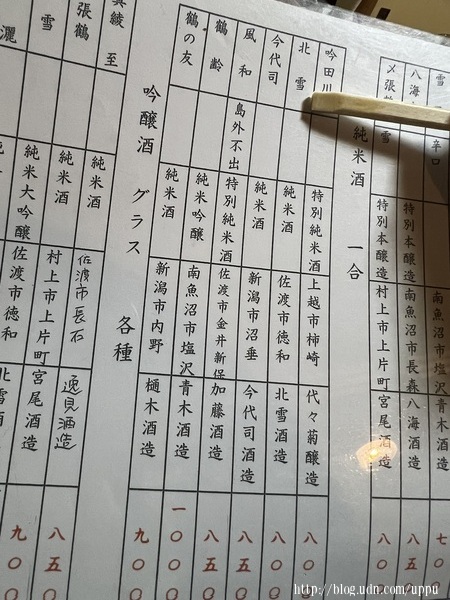 雪 辛口 南魚沼市 青木酒造 七〇〇
八海 特別本醸造 南魚沼市長森 八海酒造 八五〇
〆張 雪 特別本醸造 村上市上片町 宮尾酒造 八〇〇
純米酒 一合
吟田川 特別純米酒 上越市柿崎 代々菊醸造 八〇〇
北雪 純米酒 佐渡市徳和 北雪酒造 八〇〇
今代司 純米酒 新潟市沼垂 今代司酒造 八五〇
風和 島外不出 特別純米酒 佐渡市金井新保 加藤酒造 八五〇
鶴齢 純米吟醸 南魚沼市塩沢 青木酒造 一〇〇〇
鶴の友 純米酒 新潟市内野 樋木酒造 九〇〇
吟醸酒 グラス 各種
綾 至 純米酒 佐渡市長石 逸見酒造 八五〇
張鶴 純米酒 村上市上片町 宮尾酒造 九〇〇
雪 純米大吟醸 佐渡市徳和 北雪酒
http://blog.udn.com/uppu